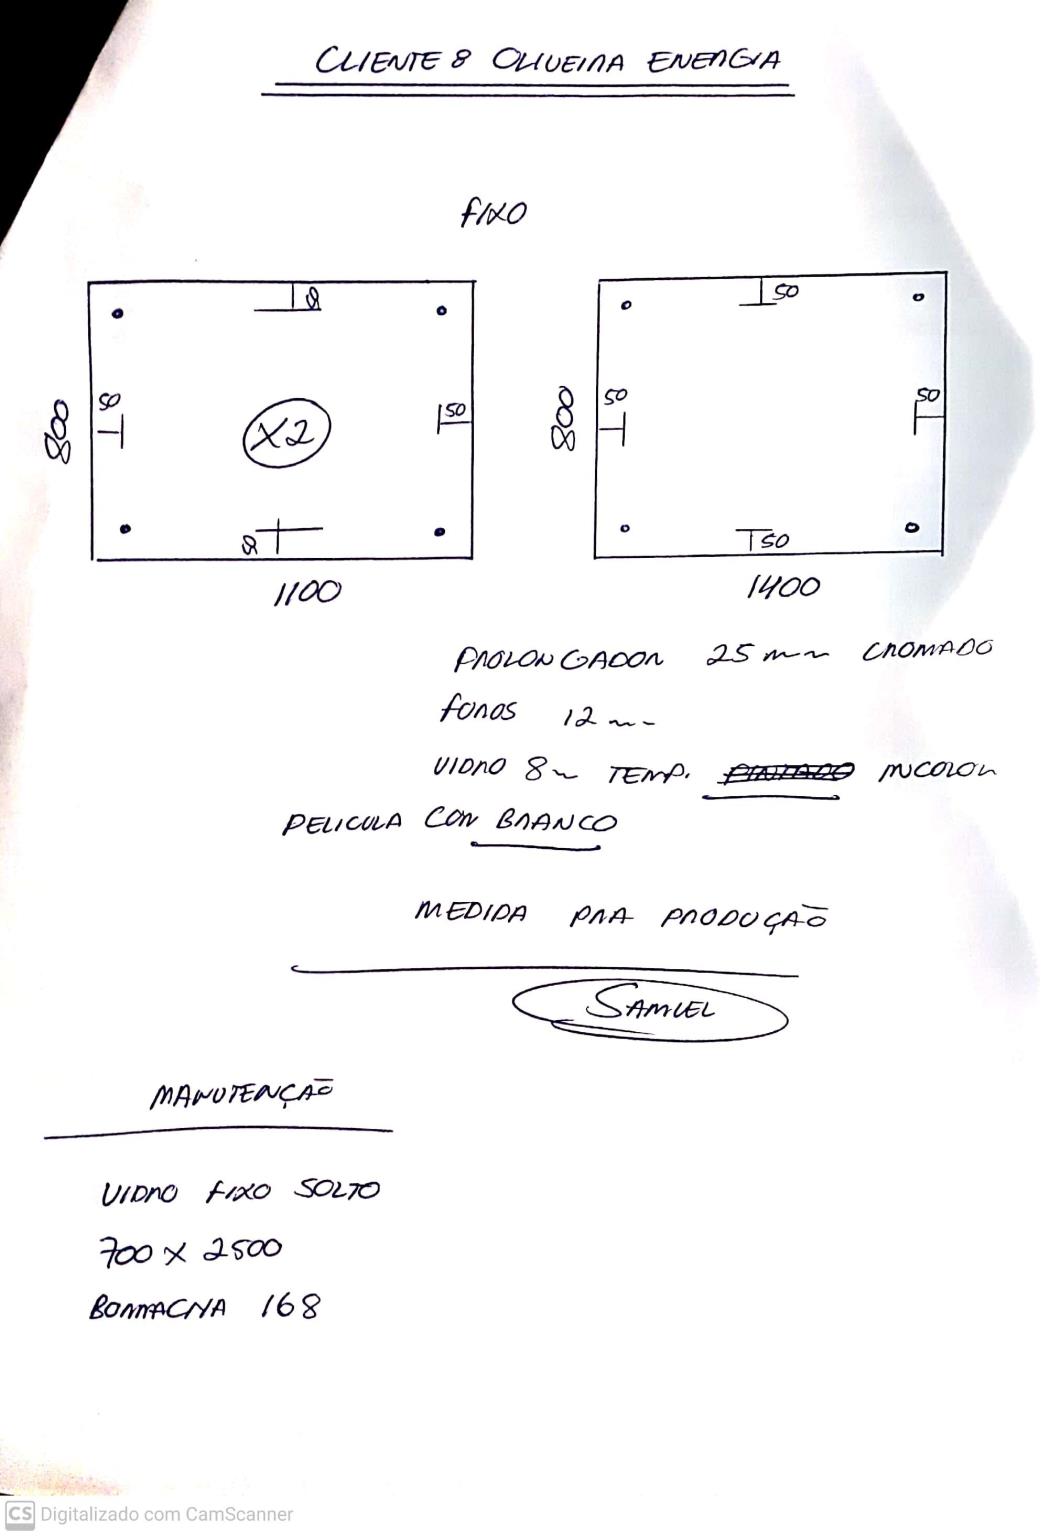 CLIENTE: OLIVEIRA ENERGIA
FIXO
50
50
50
X2
50
800
1100
50
50
50
50
800
1400
PROLONGADOR 25 mm CROMADO
FUROS 12 mm
VIDRO 8m TEMP. PINTADO INCOLOR
PELICULA COR BRANCO
MEDIDA PRA PRODUÇÃO
SAMUEL
MANUTENÇÃO
VIDRO FIXO SOLTO
700 X 2500
BORRACHA 168
CS Digitalizado com CamScanner